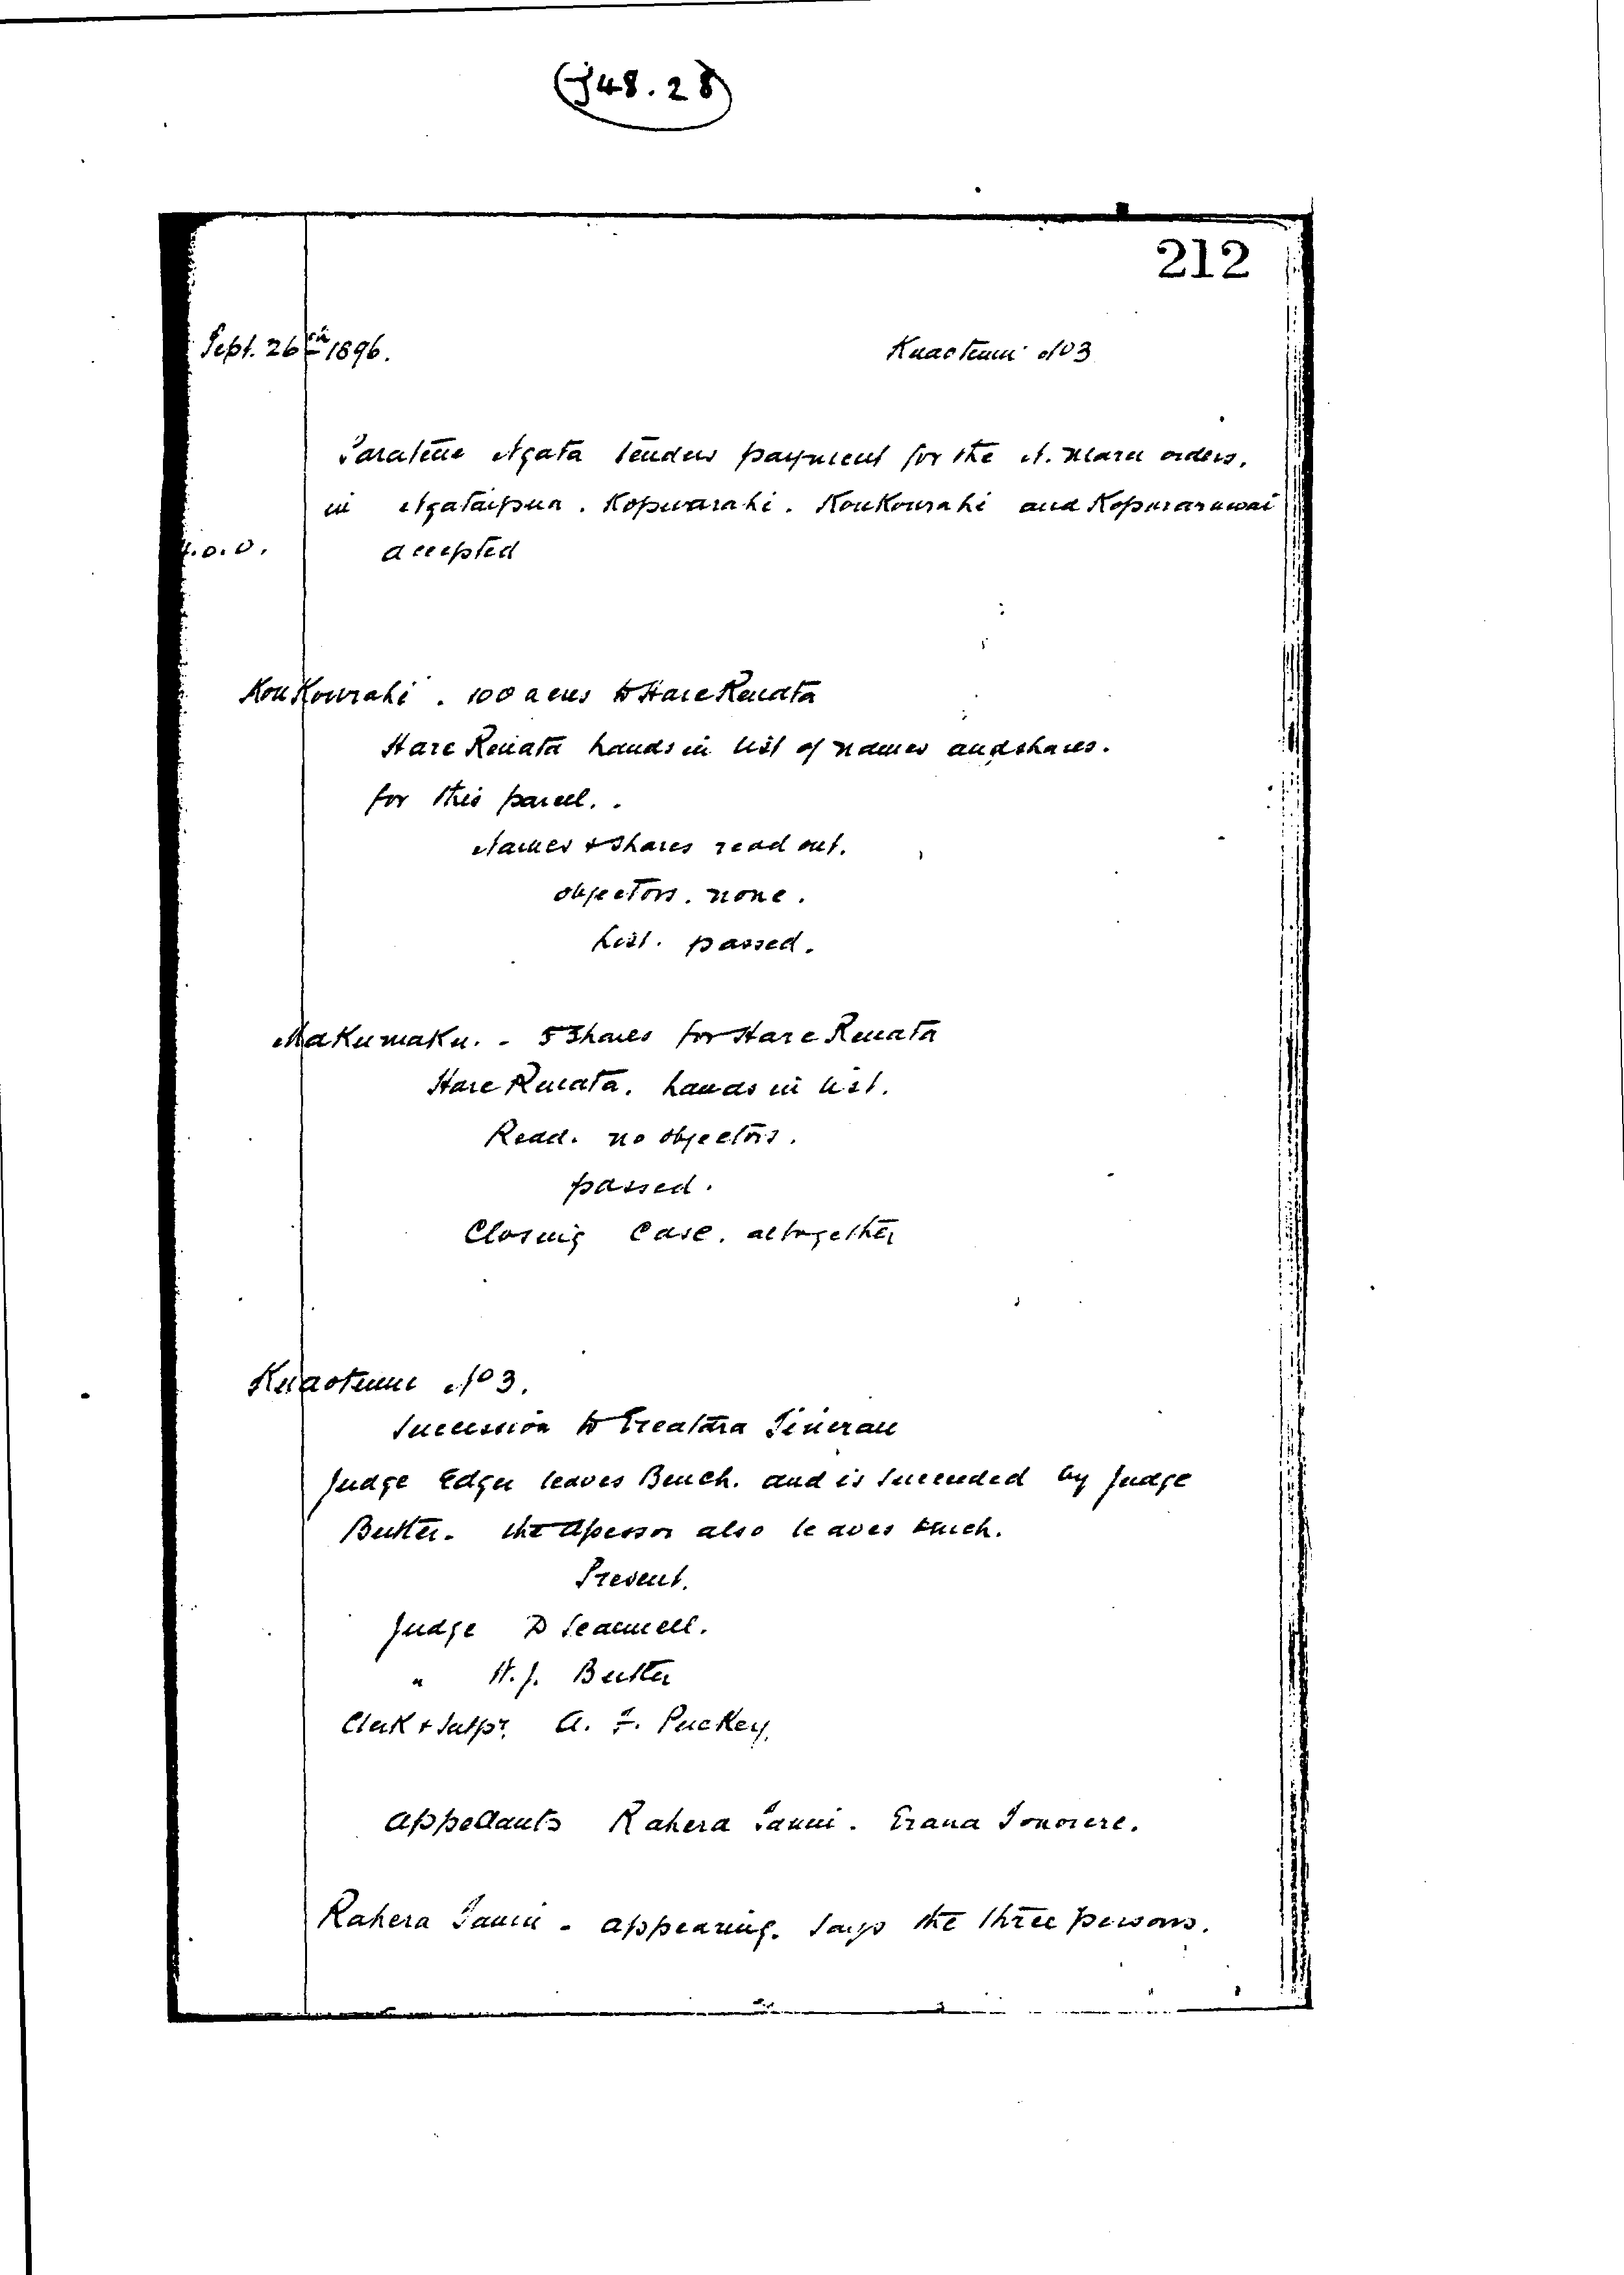 (J48.28)
212
Sept. 26th 1896. Kuaotunu No 3
Paratene Ngata tenders payment for the N. Maru orders.
in Ngataipua. Kopuarahi. Koukourahi and Kopuraruwai
4.0.0. accepted
Koukourahi. 100 acres to Hare Renata
Hare Renata hands in list of names and shares.
for this parcel.
Names & Shares read out.
objectors. none.
List. passed.
Makumaku. - 5 Shares for Hare Renata
Hare Renata. hands in list.
Read. no objectors.
passed.
Closing Case. altogether
Kuaotunu No 3.
Succession to Ereatara Tinerau
Judge Edger leaves Bench. and is succeeded by Judge
Butler. the Assessor also leaves bench.
Present.
Judge D Scannell.
" H.J. Butler
Clerk & Intpr. A. F. Puckey.
Appellants Rahera Tanui. Erana Tonorere.
Rahera Tanui - appearing. Says the three persons.